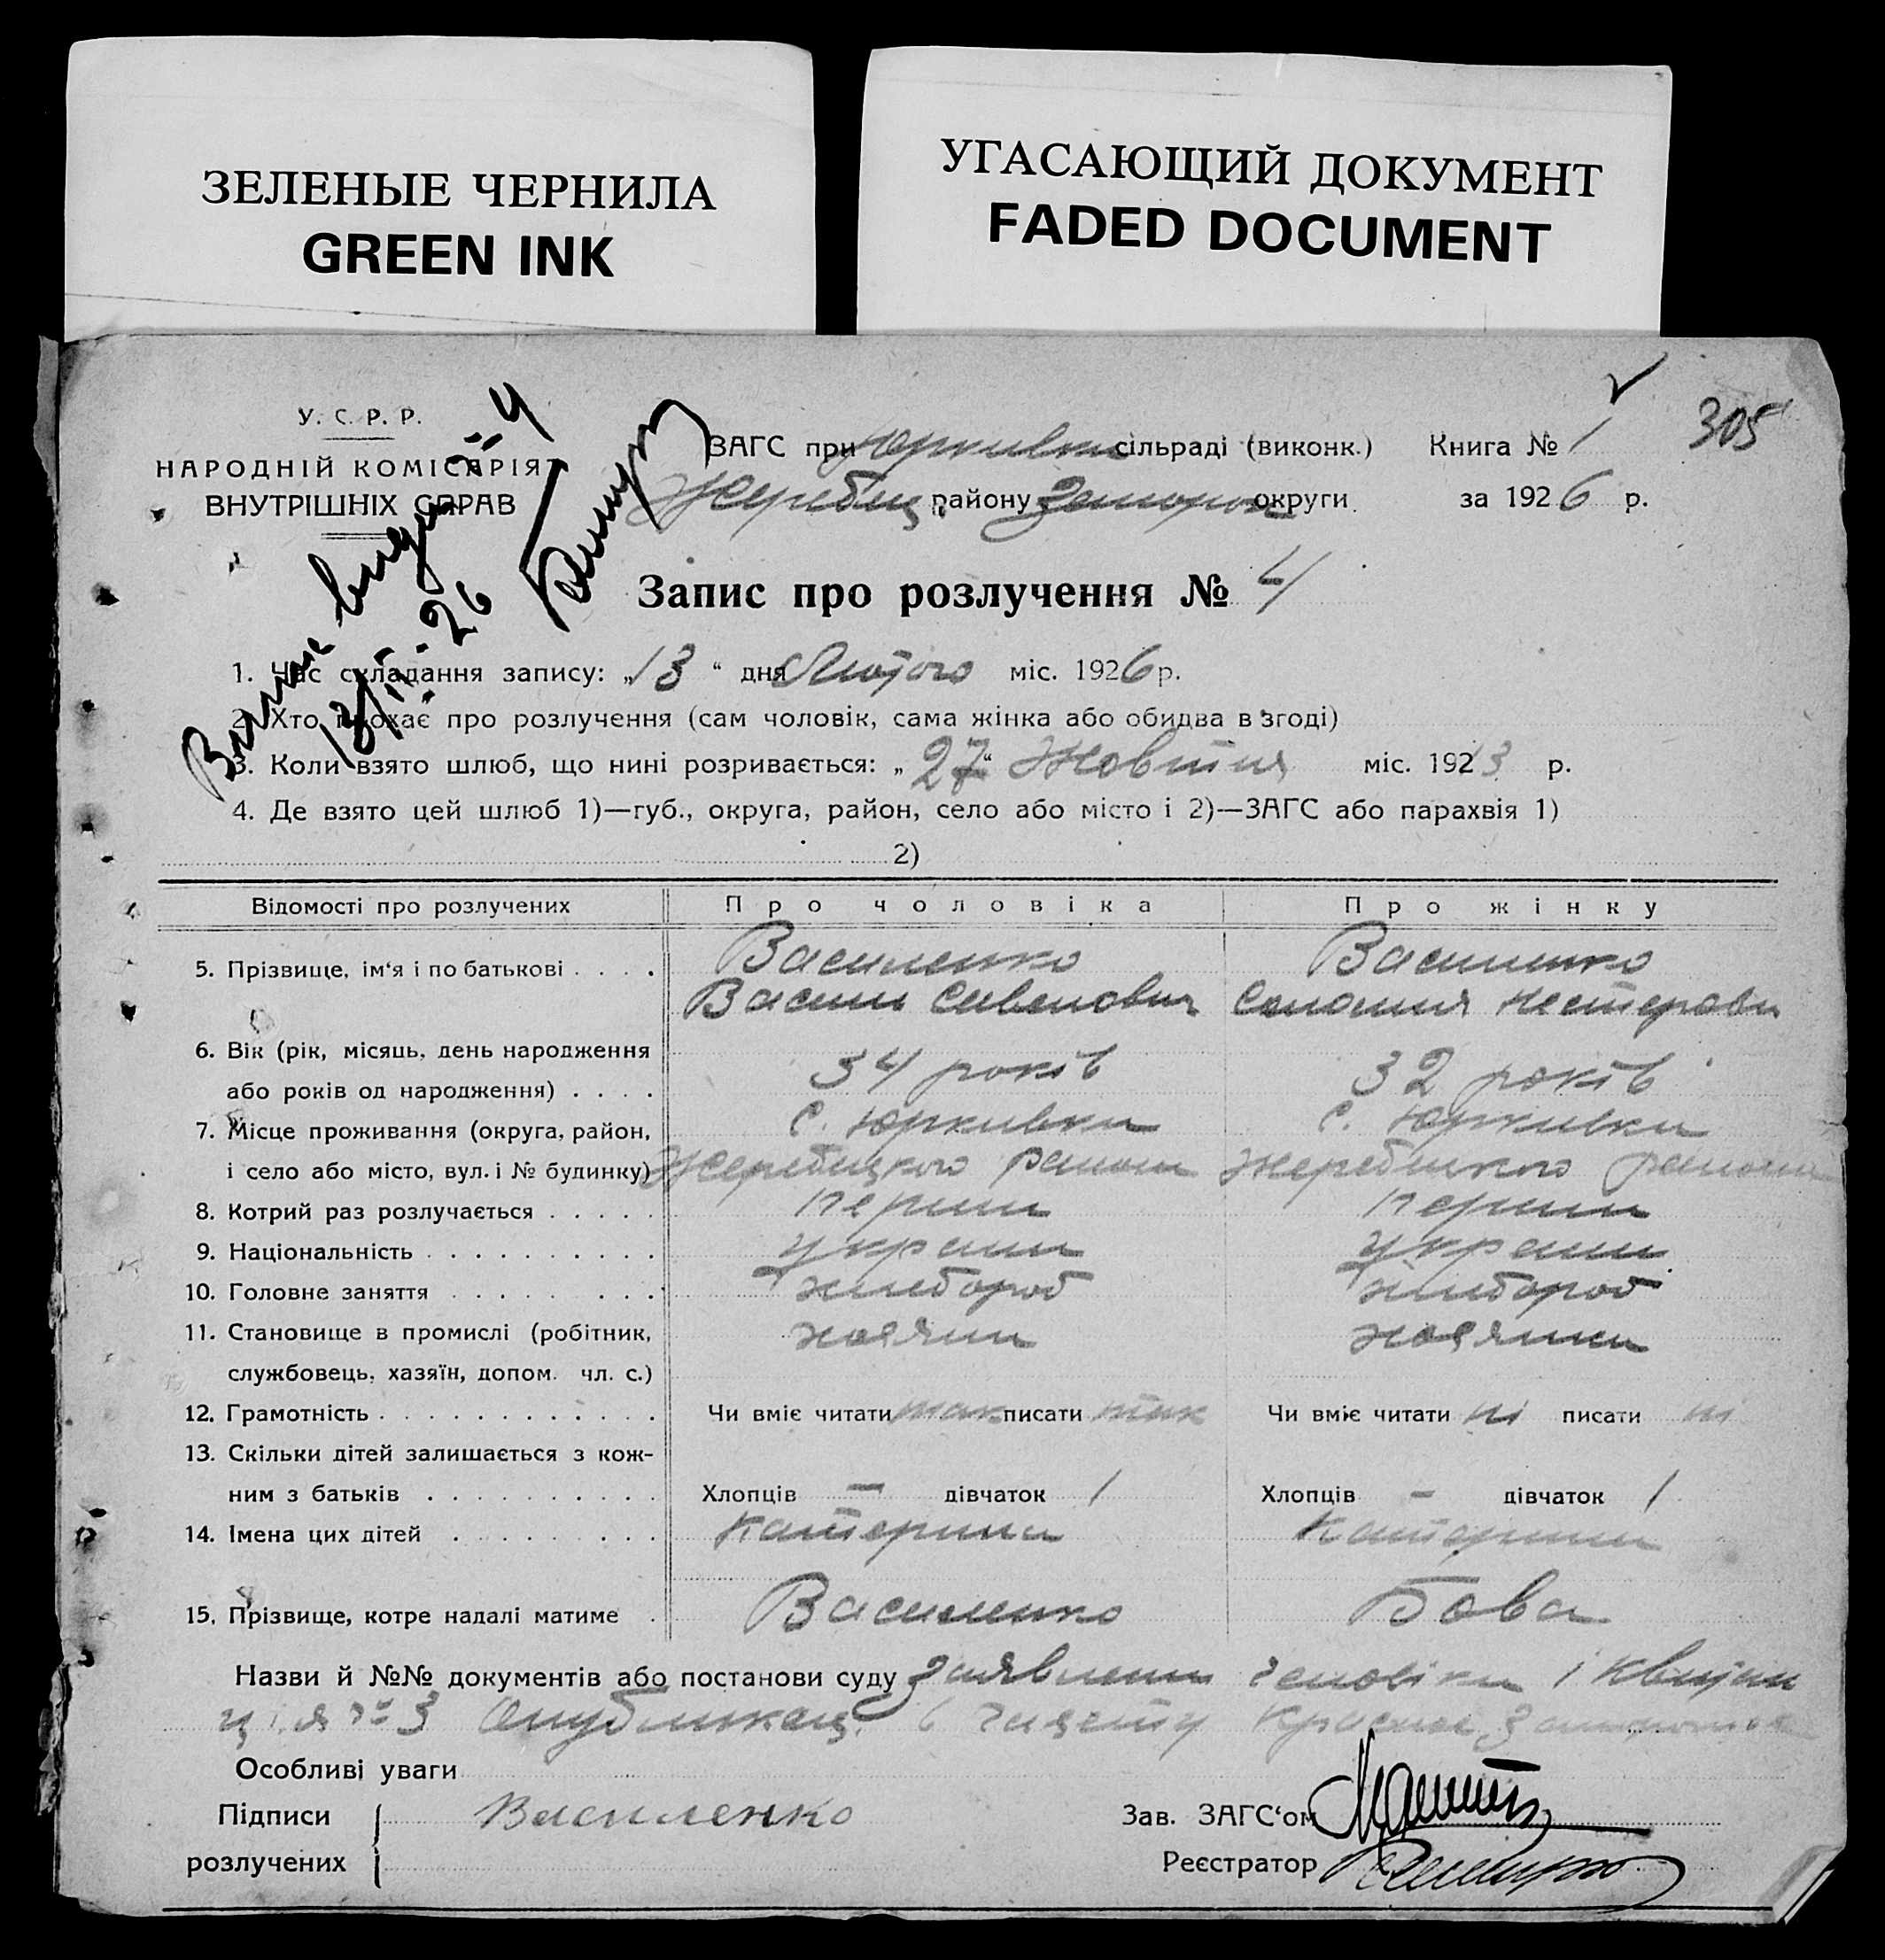 ЗЕЛЕНЫЕ ЧЕРНИЛА
GREEN INK
УГАСАЮЩИЙ ДОКУМЕНТ
FADED DOCUMENT
305
У. С. Р. Р.
НАРОДНІЙ КОМІСАРІЯТ
ВНУТРІШНІХ СПРАВ
ЗАГС при Юркивки сільраді (виконк.) Книга № 1
Жеребец. району Запорож округи за 1926 р.
13/II-26
Запис про розлучення № 4
1. Час складання запису: „13“ дня Лютого міс. 1926 р.
2. Хто прохає про розлучення (сам чоловік, сама жінка або обидва в згоді)
3. Коли взято шлюб, що нині розривається: „27“ Жовтня міс. 1923 р.
4. Де взято цей шлюб 1)—губ., округа, район, село або місто і 2)—ЗАГС або парахвія 1)
2)
Відомості про розлучених Про чоловіка Про жінку
5. Прізвище, ім‘я і по батькові . . . . Василенко Василенко
Васил Савелович Соломия Нестеровн
6. Вік (рік, місяць, день народження
або років од народження) . . . . 34 років 32 років
7. Місце проживання (округа, район, с. Юркивки с. Юркивки
і село або місто, вул. і № будинку) Жеребецкого району Жеребецкого району
8. Котрий раз розлучається . . . . . перши перши
9. Національність . . . . . . . . . . . украин украин
10. Головне заняття . . . . . . . . хлибороб хлибороб
11. Становище в промислі (робітник, хозяин хозяика
службовець, хазяїн, допом. чл. с.)
12. Грамотність . . . . . . . . . . . . . Чи вміє читати так писати так Чи вміє читати ні писати ні
13. Скільки дітей залишається з кож-
ним з батьків . . . . . . . . . . Хлопців — дівчаток 1 Хлопців — дівчаток 1
14. Імена цих дітей . . . . . . . . . Катерина Катерина
15. Прізвище, котре надалі матиме . Василенко Бова
Назви й №№ документів або постанови суду Заявлени человіка і Квитан
ція № 3 Опубликац. в газету Красное Запорожье
Особливі уваги
Підписи Василенко Зав. ЗАГС‘ом
розлучених Реєстратор